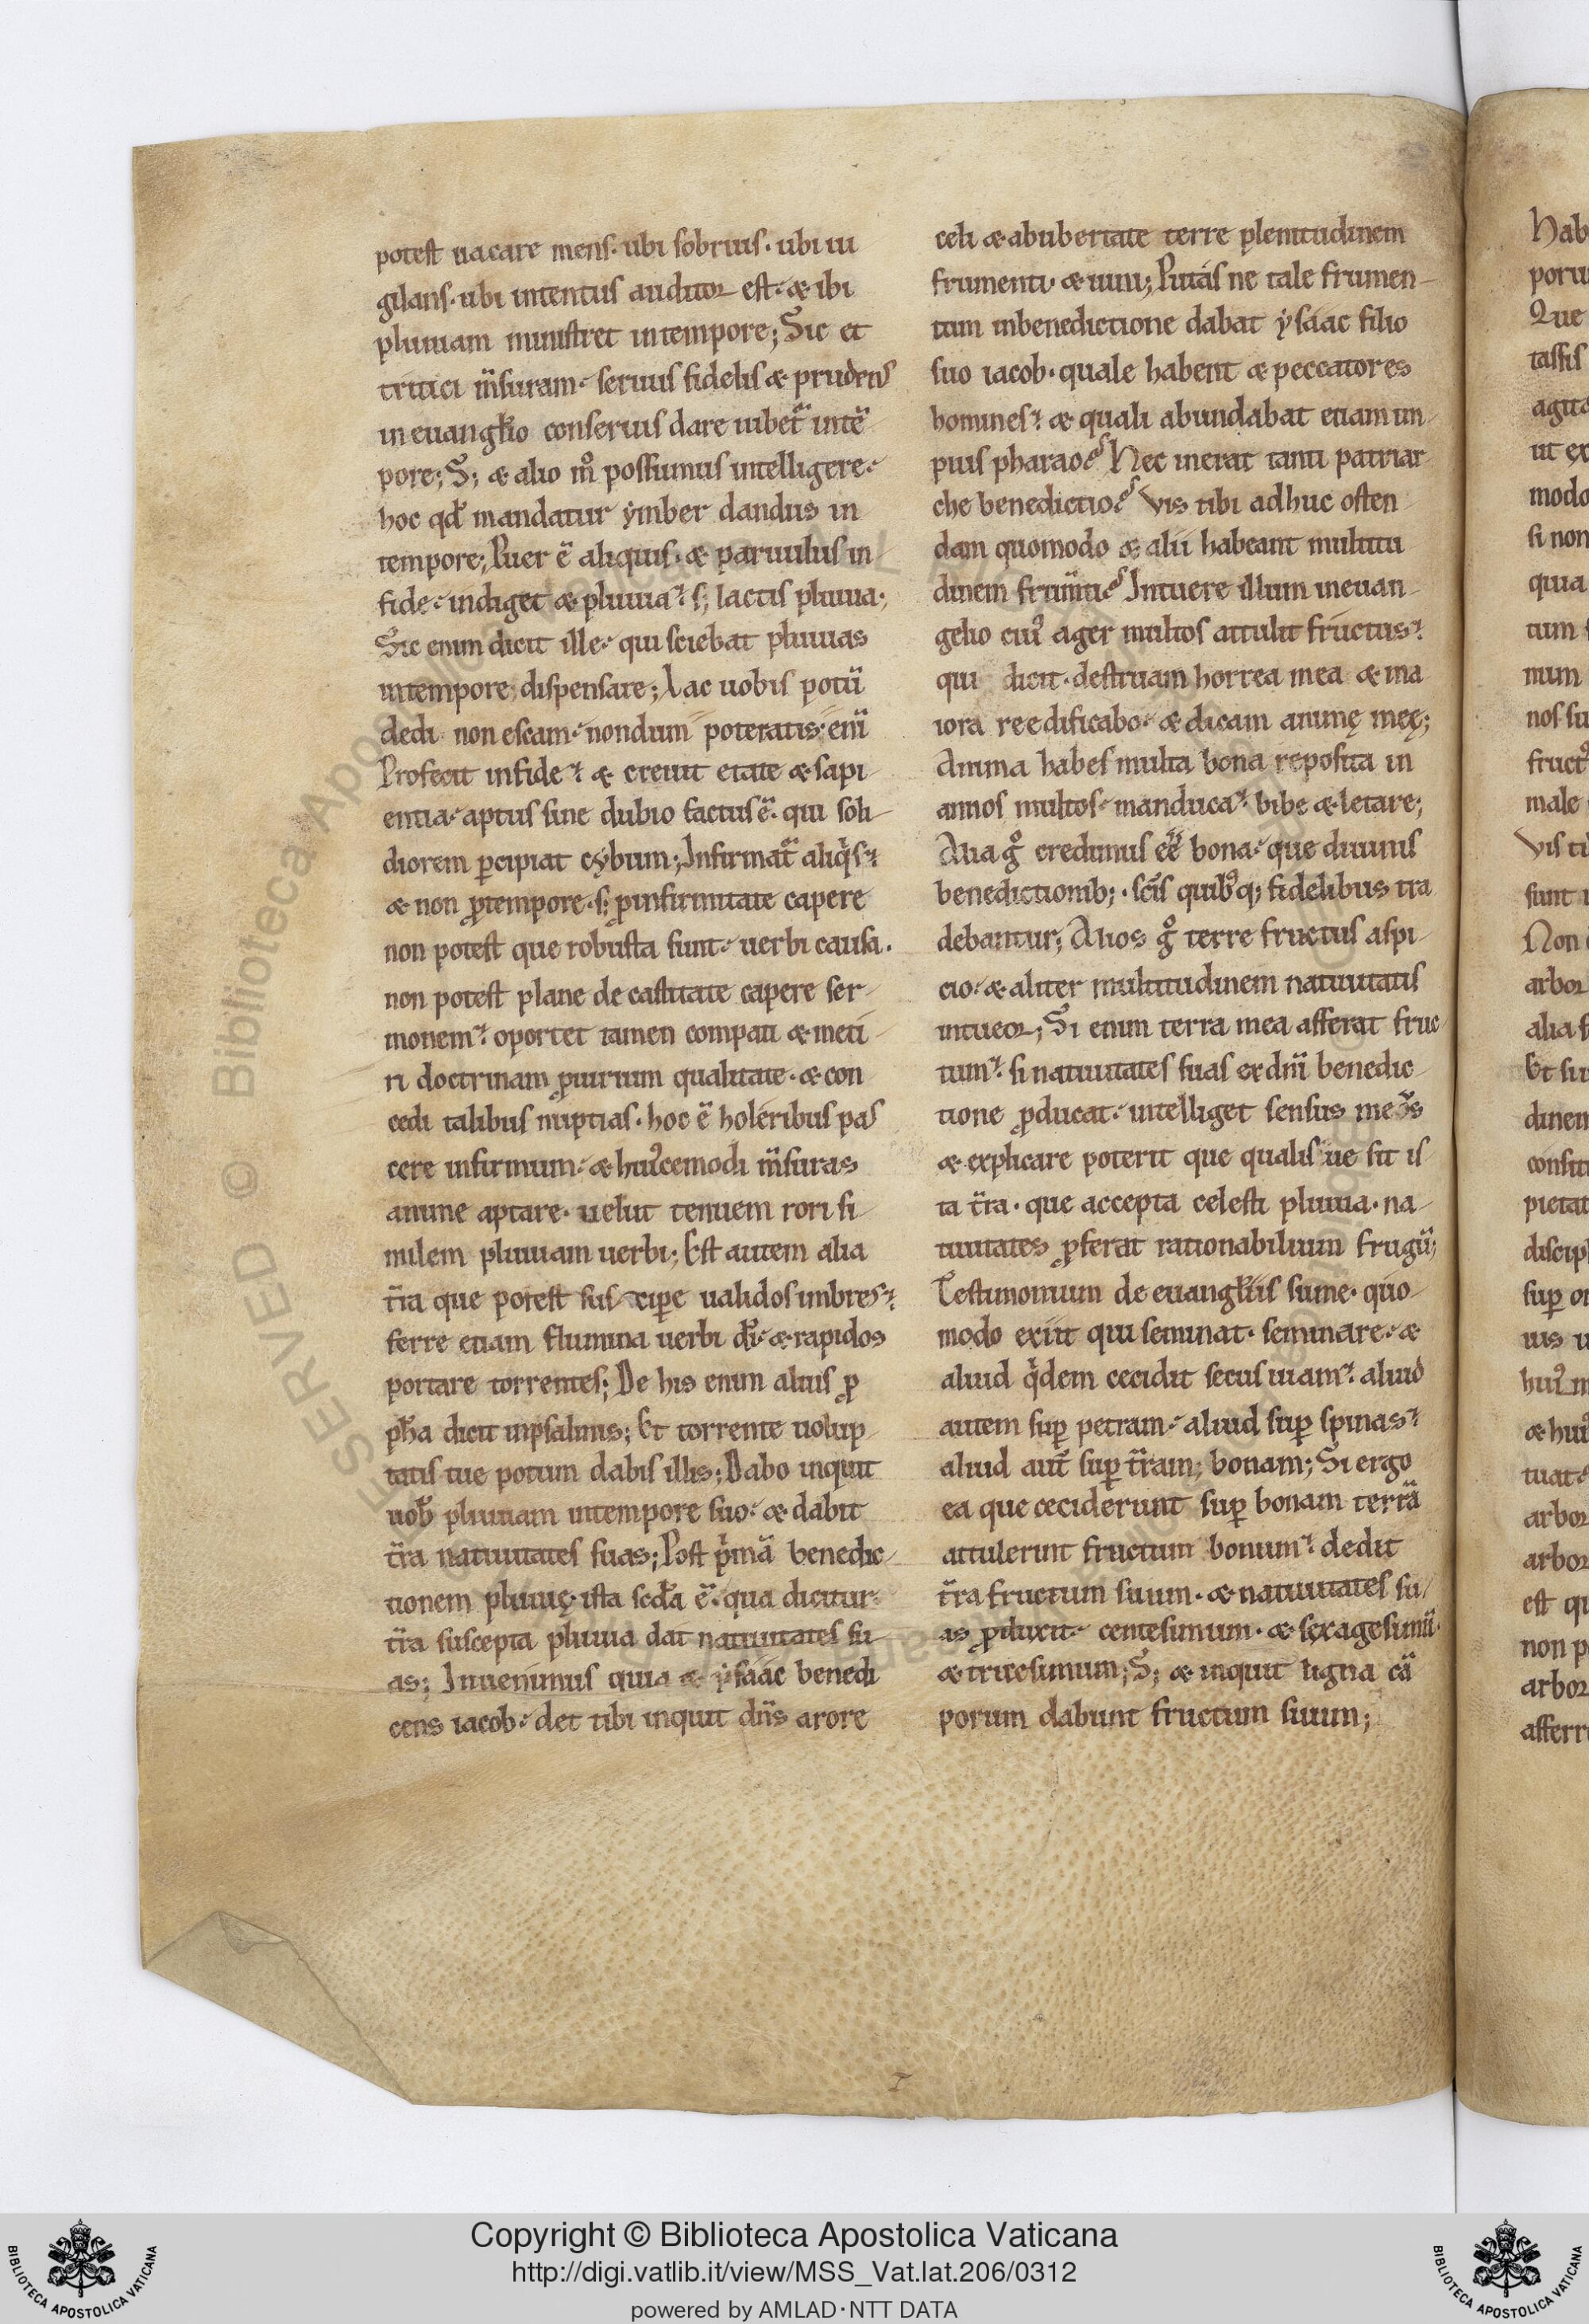 potest uacare mens· ubi sobrius· ubi ui
gilans· ubi intentus auditor est· & ibi
pluuiam ministret intempore; Sic et
tritici m̃suram· seruus fidelis & prudens
in euangl̃io conseruis dare iubet̃ intẽ
pore; S; & alio m̊ possumus intelligere·
hoc qđ mandatur ẏmber dandus in
tempore; Puer ẽ aliquis· & paruulus in
fide· indiget & pluuia· s; lactis pluuia·;
Sic enim dicit ille· qui sciebat pluuias
intempore dispensare; Lac uobis potũ
dedi non escam· nondum poteratis· enĩ
Profecit infide· & creuit etate & sapi
entia· aptus sine dubio factus ẽ· qui soli
diorem ꝑcipiat cẏbum; Infirmat̃ aliqͥs·
& non ꝓtempore· s; ꝓinfirmitate capere
non potest que robusta sunt· uerbi causa·
non potest plane de castitate capere ser
monem· oportet tamen compati & meti
ri doctrinam ꝓuirium qualitate· & con
cedi talibus nuptias· hoc ẽ holeribus pas
cere infirmum· & hui᷒cemodi m̃suras
anime aptare· uelut tenuem rori si
milem pluuiam uerbi; Est autem alia
t̃ra que potest sus cipe ualidos imbres·
ferre etiam flumina uerbi dĩ· & rapidos
portare torrentes; De his enim alius ꝓ
pħa dicit inpsalmis; Et torrente uolup
tatis tue potum dabis illis; Dabo inquit
uob̃ pluuiam intempore suo· & dabit
t̃ra natiuitates suas; Post pͥmã benedic
tionem pluuię· ista scđa ẽ· qua dicitur·
t̃ra suscepta pluuia dat natiuitates su
as; Inuenimus quia & ẏsáác benedi
cens iacob· det tibi inquit dñs arore
celi & abubertate terre plenitudinem
frumenti· & uini; Putás ne tale frumen
tum inbenedictione dabat ẏsáác filio
suo iacob· quale habent & peccatores
homines· & quali abundabat etiam im
pius pharao? Nec inerat tanti patriar
che benedictio? Vis tibi adhuc osten
dam quomodo & alii habeant multitu
dinem frum̃ti? Intuere illum ineuan
gelio cui᷒ ager multos attulit fructus·
qui dicit· destruam horrea mea & ma
iora reedificabo· & dicam animę męę;
Anima habes multa bona reposita in
annos multos· manduca· bibe & letare;
Alia g̊ credimus eẽ bona· que diuinis
benedictionib;· sc̃is quib᷒q; fidelibus tra
debantur; Alios g̊ terre fructus aspi
cio· & aliter multitudinem natiuitatis
intueor; Si enim terra mea afferat fruc
tum· si natiuitates suas ex dñi benedic
tione ꝓducat· intelliget sensus meus
& explicare poterit que qualis ue sit is
ta t̃ra· que accepta celesti pluuia· na
tiuitates ꝓferat rationabilium frugũ;
Testimonium de euangl̃iis sume· quo
modo exiit qui seminat· seminare· &
aliud qͥdem cecidit secus uiam· aliud
autem suꝑ petram· aliud suꝑ spinas·
aliud aut̃ suꝑ t̃ram; bonam; Si ergo
ea que ceciderunt suꝑ bonam terrã
attulerunt fructum bonum· dedit
t̃ra fructum suum· & natiuitates su
as ꝓduxit· centesimum· & sexagesimũ·
& tricesimum; S; & inquit ligna cã
porum dabunt fructum suum;
Hab
poru
Que
tassis
agita
ut ex
modo
si non
quia
tum
num
nos su
fruct᷒
male
Vis ti
sunt
Non
arbor
alia f
Et su
dinem
consti
pietat
discip
suꝑ or
uis u
hui᷒ m
& hui᷒
tuat·
arbor
arbor
est qu
non p
arbor
afferr
Copyright © Biblioteca Apostolica Vaticana
http://digi.vatlib.it/view/MSS_Vat.lat.206/0312
powered by AMLAD·NTT DATA
BIBLIOTECA APOSTOLICA VATICANA
BIBLIOTECA APOSTOLICA VATICANA